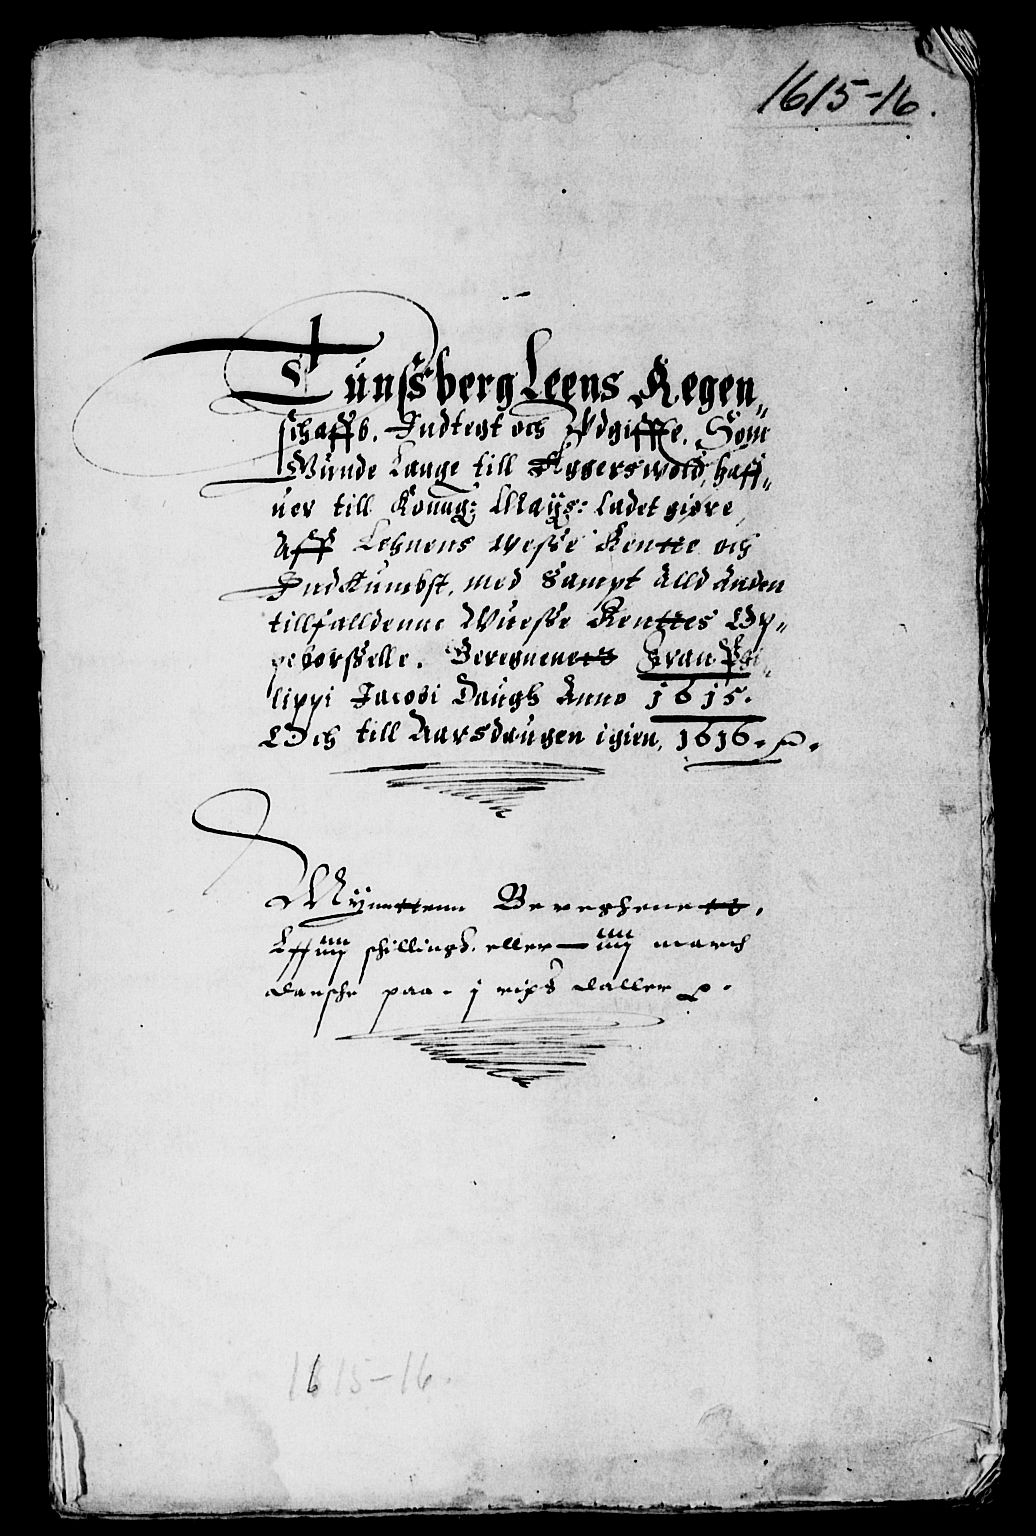 1615-16.
Tunsberg Leens Regen„
schaffb. Indtegt och Wdgiffte. Som
Munde Lauge till Aggerswold, haff„
uer till Konng: Mays: ladet giøre
Aff Lehnens wesse Rentte och
Indkumbst, med Sampt Alld Anden
tillfalldenne Wuesse Renttes Op„
peborselle. Beregnenets Fran Phi„
lippi Jacobi Daugh Anno 1615.
Och till Aarsdaugen igien, 1616.
Myntenn Bereghenetts,
Eff iiij schillingh. eller — iiij march
dansche paa. j rixs daller
1615-16.